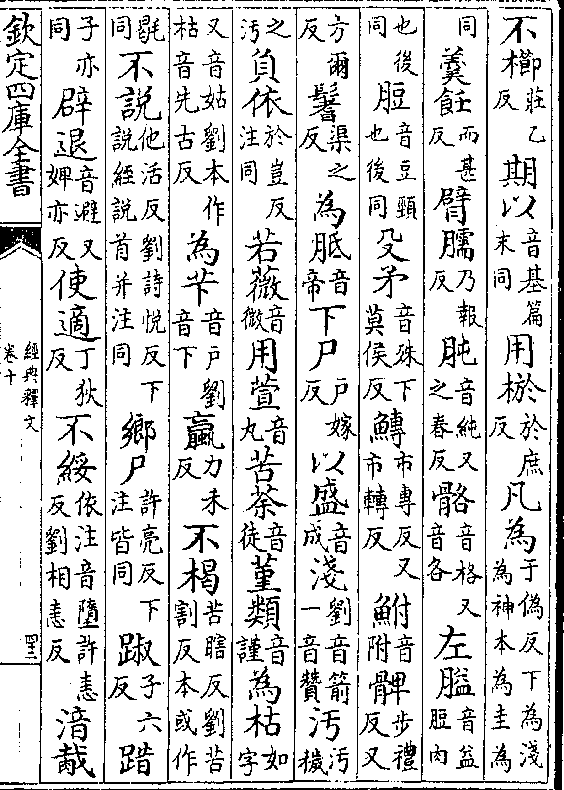 不櫛莊乙反期以音基篇末同用棜於庶反凡為于偽反下為淺為神本為圭為
同羮飪而甚反臂臑乃報反肫音純又之春反骼音格又音各左膉音益脰肉
也後同脰音豆頸也後同殳矛音殊下莫侯反鱄市專反又市轉反鮒音附髀步禮反又
方爾反鬐渠之反為胝音帝下尸戶嫁反以盛音成淺劉音箭一音贊汚汚穢
之汚負依於豈反注同若薇音微用萱音丸苦荼音徒菫類音謹為枯如字
又音姑劉本作枯音先古反為芐音戶劉音下羸力禾反不楬苦瞎反劉苦割反本或作
毼同不說他活反劉詩悅反下同說經說首并注同鄉尸許亮反下注皆同踧子六反踖
子亦同辟退音避又婢亦反使適丁狄反不綏依注音墮許恚反劉相恚反湆胾
欽定四庫全書
經典釋文
卷十